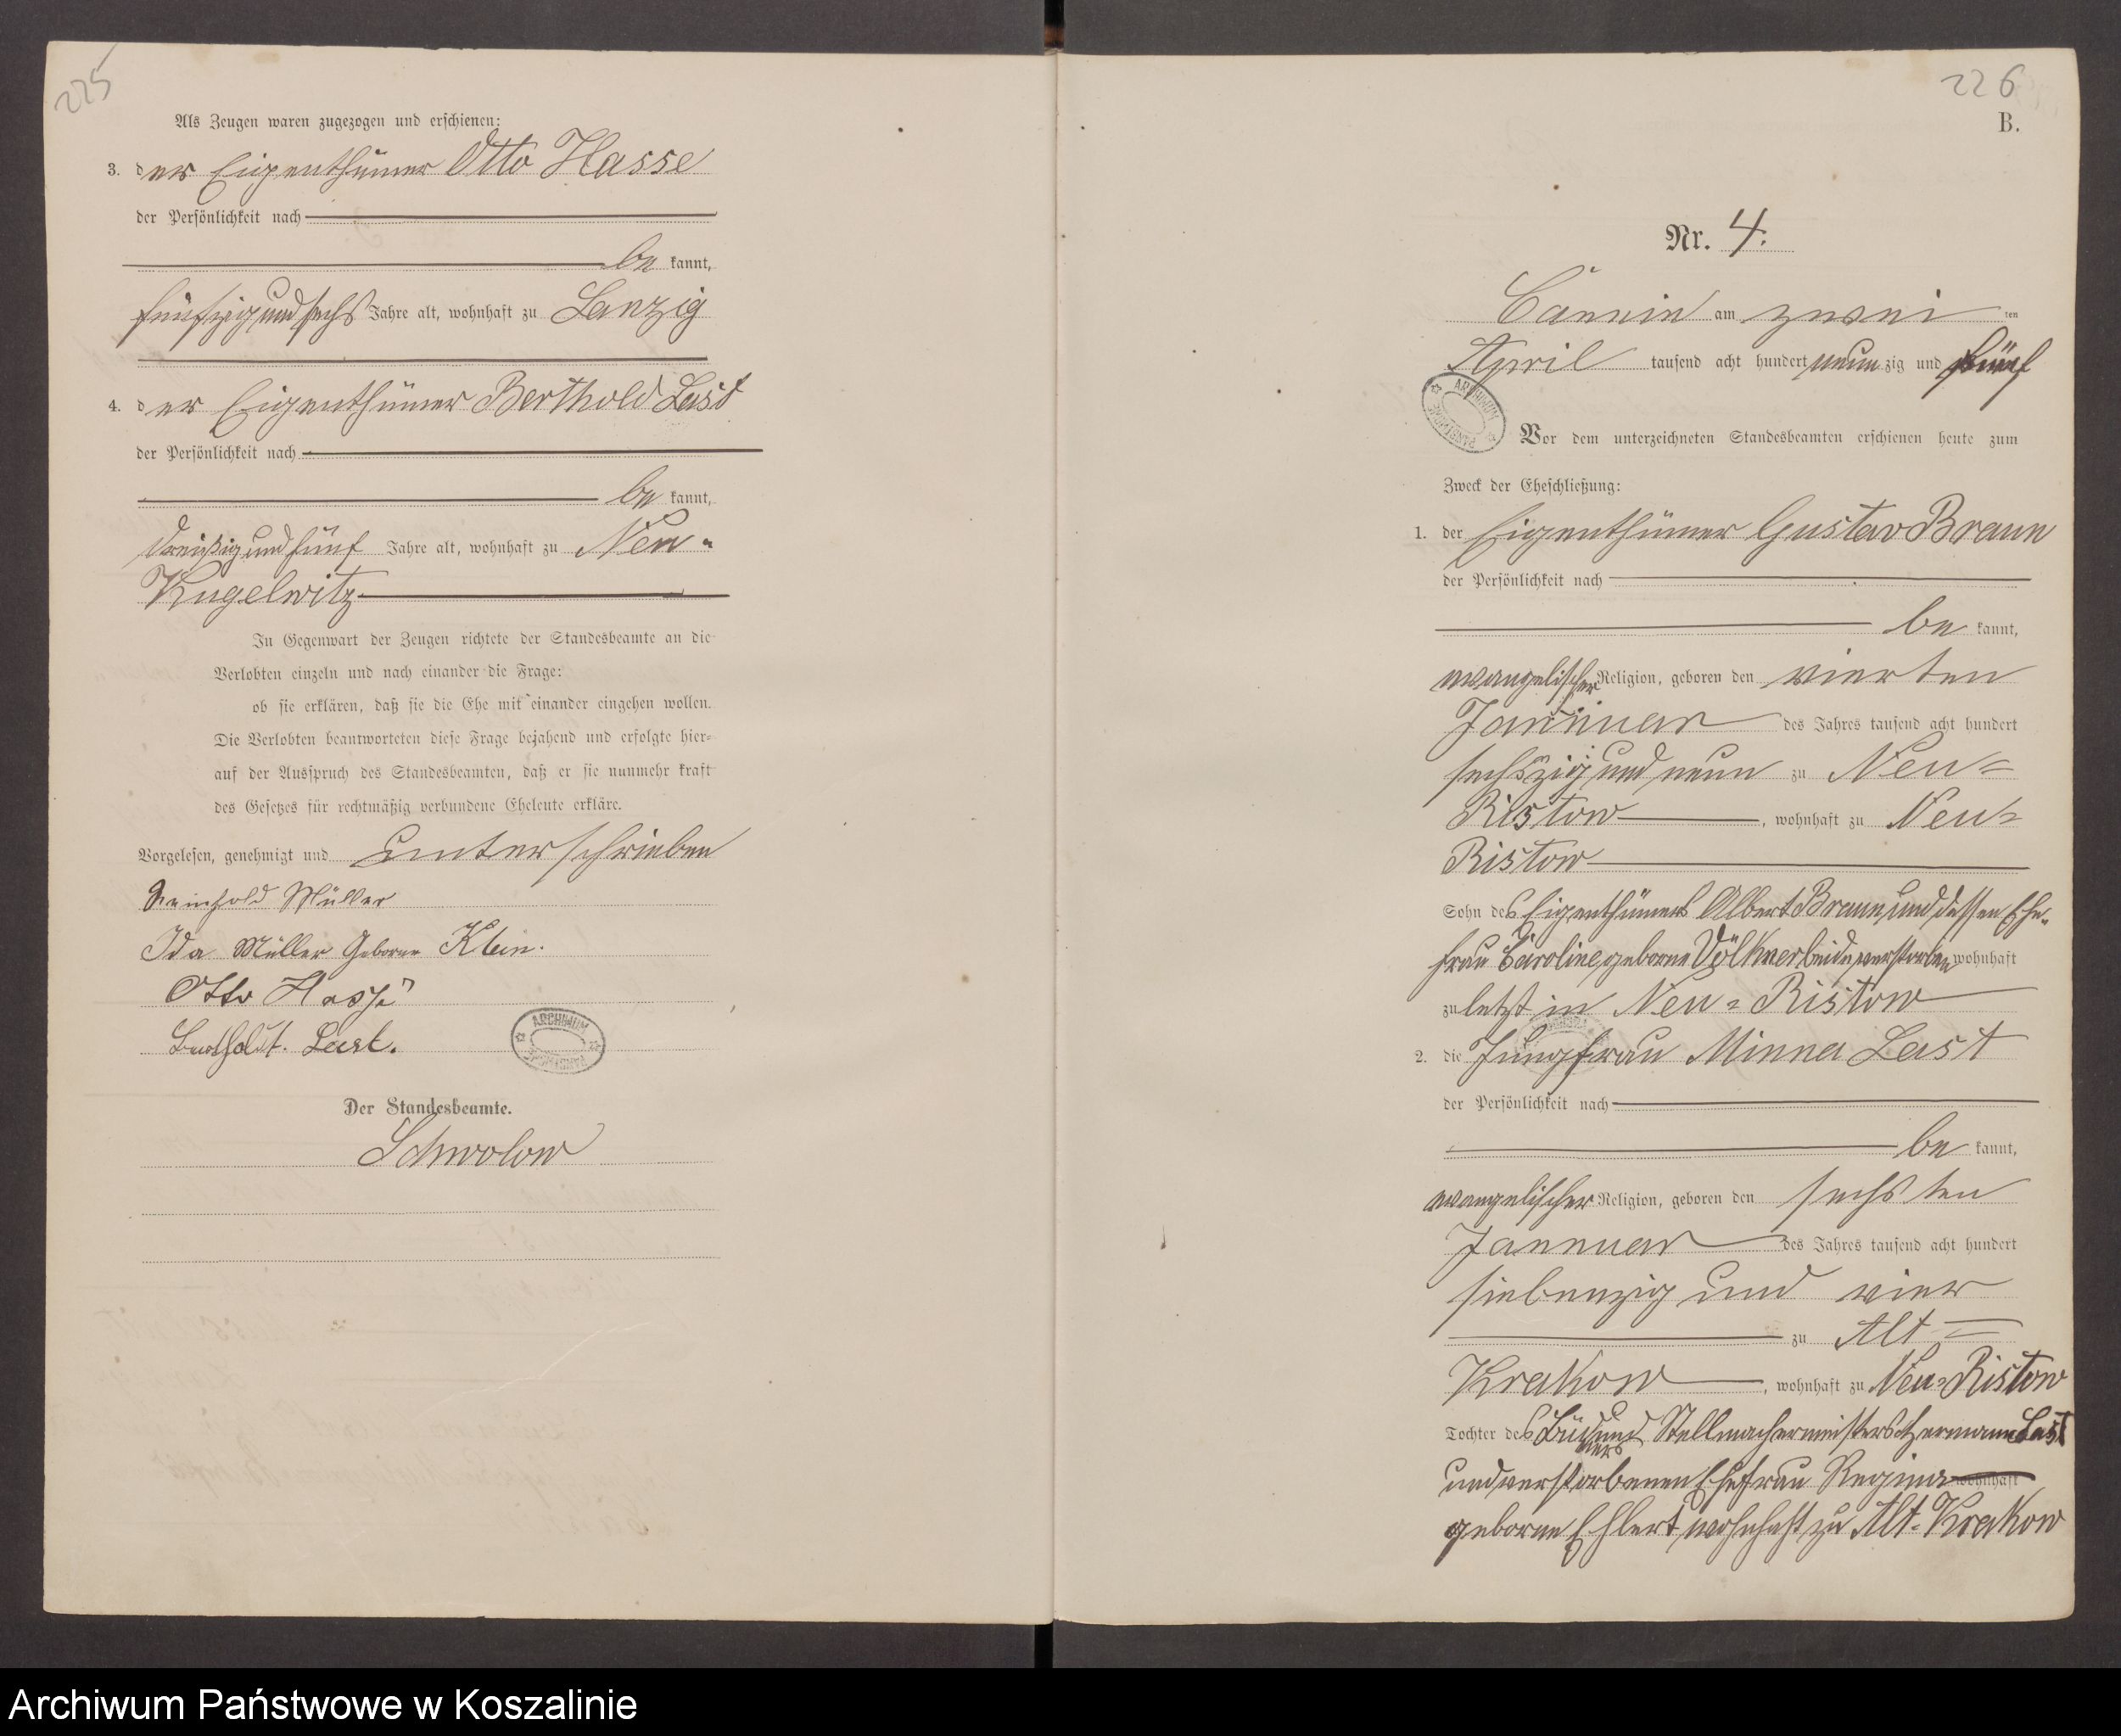 225
Als Zeugen waren zugezogen und erschienen:
3. der Eigenthümer Otto Hasse
der Persönlichkeit nach
be kannt,
fünfzig und sechs Jahre alt, wohnhaft zu Lanzig
4. der Eigenthümer Berthold Last
der Persönlichkeit nach
be kannt,
dreißig und fünf Jahre alt, wohnhaft zu Neu-
Kugelwitz
In Gegenwart der Zeugen richtete der Standesbeamte an die
Verlobten einzeln und nach einander die Frage:
ob sie erklären, daß sie die Ehe mit einander eingehen wollen.
Die Verlobten beantworteten diese Frage bejahend und erfolgte hier=
auf der Ausspruch des Standesbeamten, daß er sie nunmehr kraft
des Gesetzes für rechtmäßig verbundene Eheleute erkläre.
Vorgelesen, genehmigt und unterschrieben
Reinhold Müller
Ida Müller Geborne Klein.
Otto Hasse
Bertholdt. Last.
ARCHIWUM PAŃSTWOWE
Der Standesbeamte.
Schwolow
226
B.
Nr. 4.
Cannin am zwei ten
April tausend acht hundert neun zig und fünf
ARCHIWUM PAŃSTWOWE
Vor dem unterzeichneten Standesbeamten erschienen heute zum
Zweck der Eheschließung:
1. der Eigenthümer Gustav Braun
der Persönlichkeit nach
be kannt,
evangelischer Religion, geboren den vierten
Jannuar des Jahres tausend acht hundert
sechszig und neun zu Neu=
Ristow, wohnhaft zu Neu=
Ristow
Sohn des Eigenthümers Albert Braun und dessen Ehe-
frau Caroline geborne Völkner beide verstorben wohnhaft
zuletzt in Neu=Ristow
2. die Jungfrau Minna Last
der Persönlichkeit nach
be kannt,
evangelischer Religion, geboren den sechs ten
Jannuar des Jahres tausend acht hundert
siebenzig und vier
zu Alt=
Krakow, wohnhaft zu Neu=Ristow
Tochter des und Stellmachermeisters Hermann Last
und verstorbenen Ehefrau Regina wohnhaft
geborne Ehlert wohnhaft zu Alt-Krakow
Archiwum Państwowe w Koszalinie